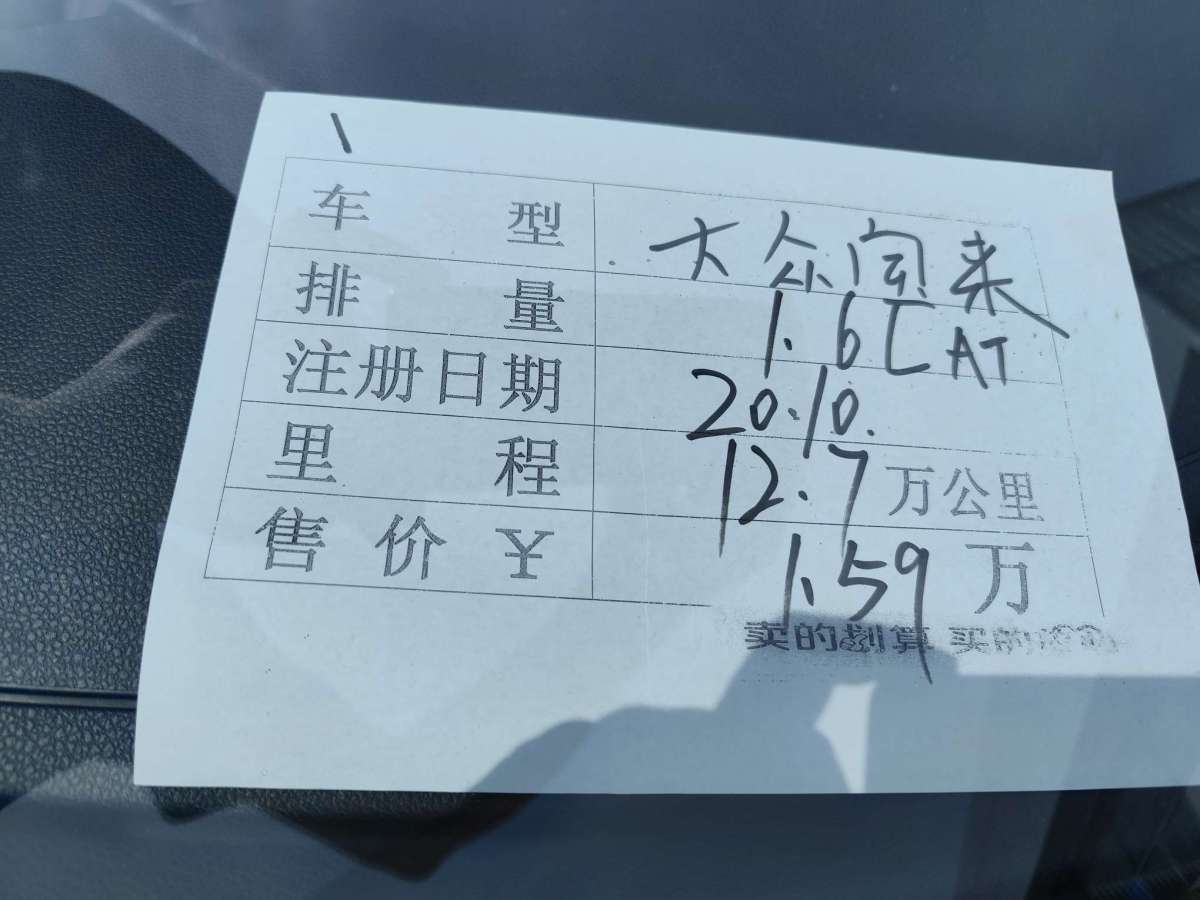 车型 大众宝来
排量 1.6L AT
注册日期 2010.10.
里程 12.7万公里
售价¥ 1.59万
卖的划算 买的